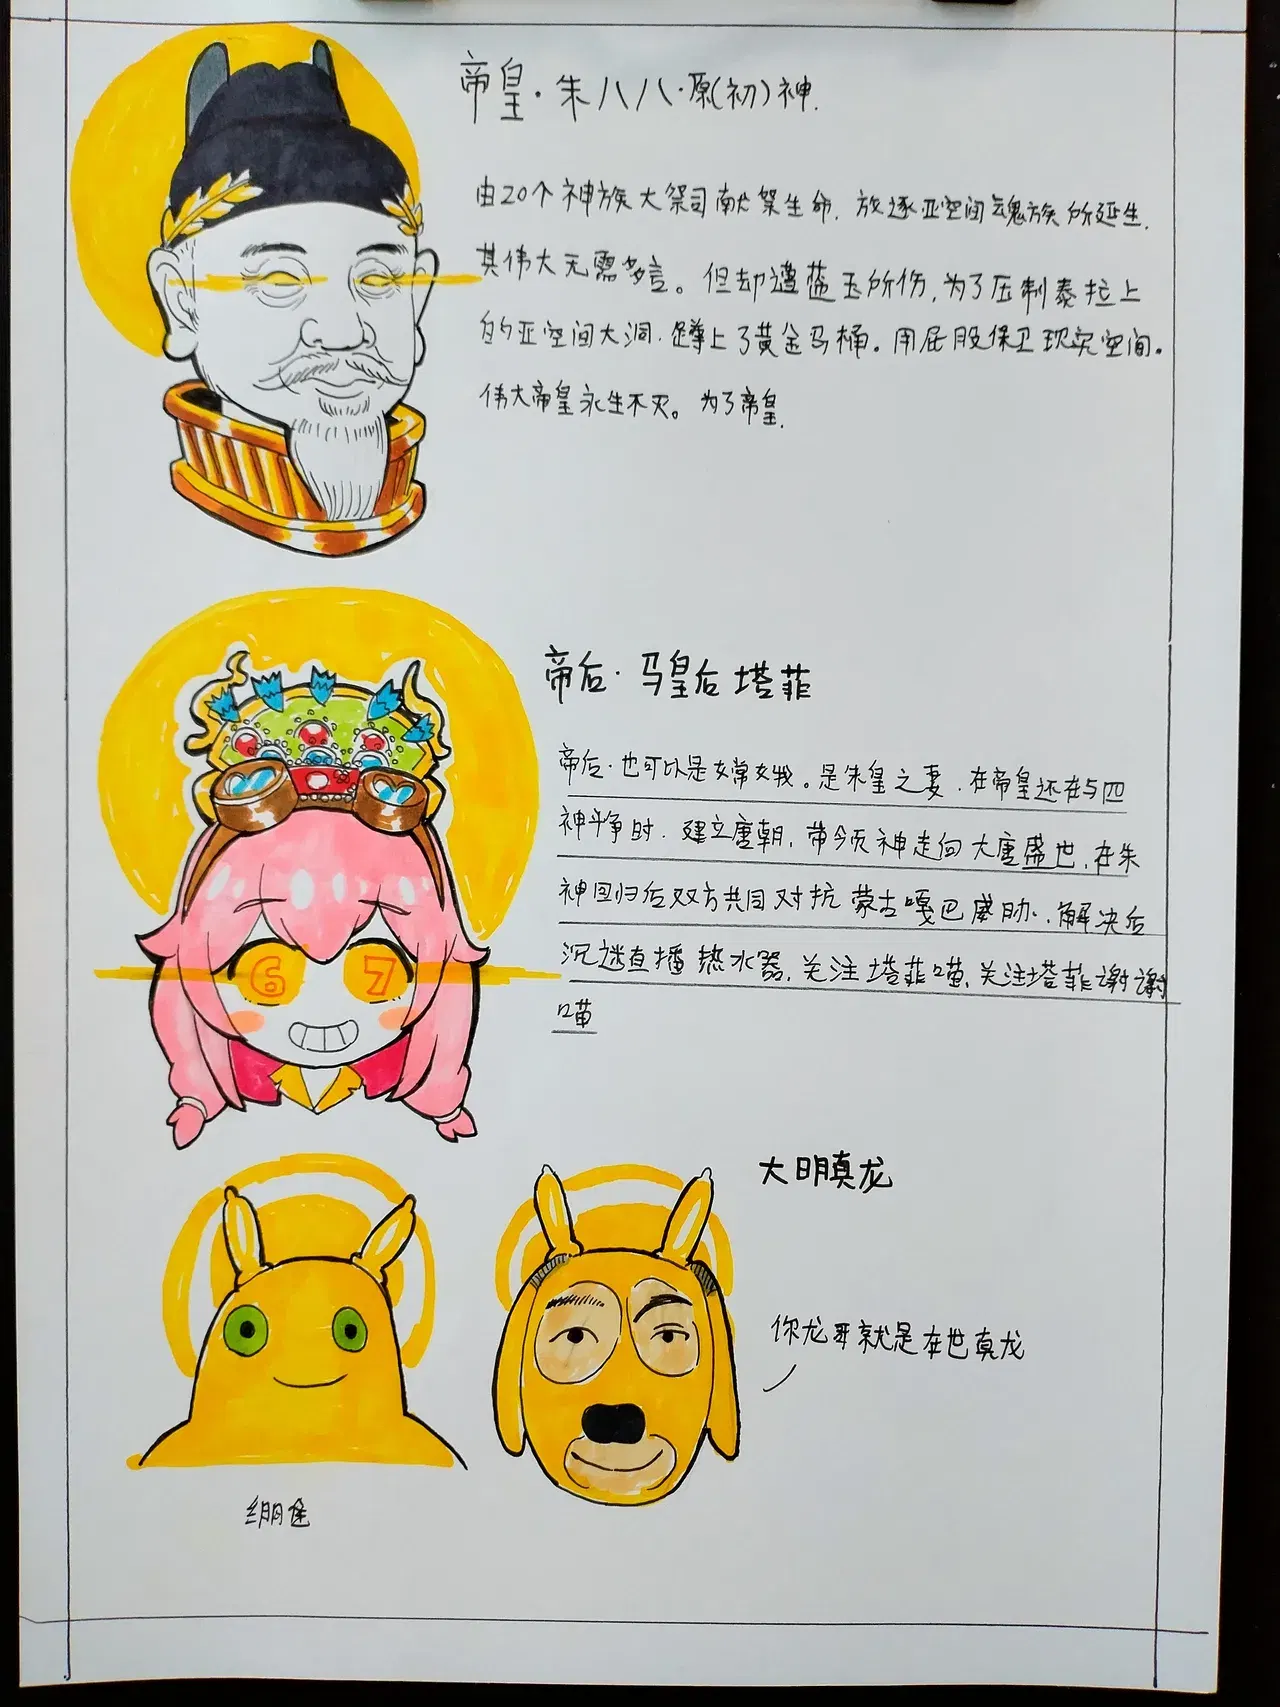 帝皇·朱八八·原(初)神.
由20个神族大祭司献祭生命.放逐亚空间魂族所延生.
其伟大无需多言。但却遭蓝玉所伤,为了压制泰拉上
的亚空间大洞.蹲上了黄金马桶。用屁股保卫现实空间。
伟大帝皇永生不灭。为了帝皇.
帝后·马皇后塔菲
帝后·也可以是女常女我。是朱皇之妻.在帝皇还在与四
神斗争时.建立唐朝,带领神走向大唐盛世,在朱
神回归后双方共同对抗蒙古嘎巴威胁.解决后
沉迷直播热水器,关注塔菲喵,关注塔菲谢谢
喵
6 7
大明真龙
你龙哥就是在世真龙
绷